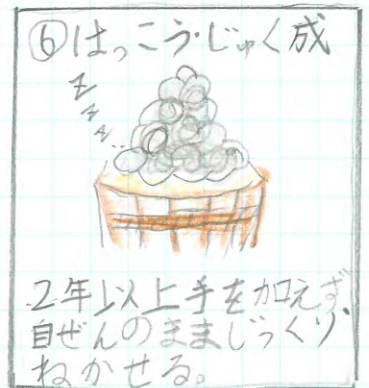 ⑥はっこう・じゅく成
zzz
2年以上手を加えず、
自ぜんのままじっくり
ねかせる。